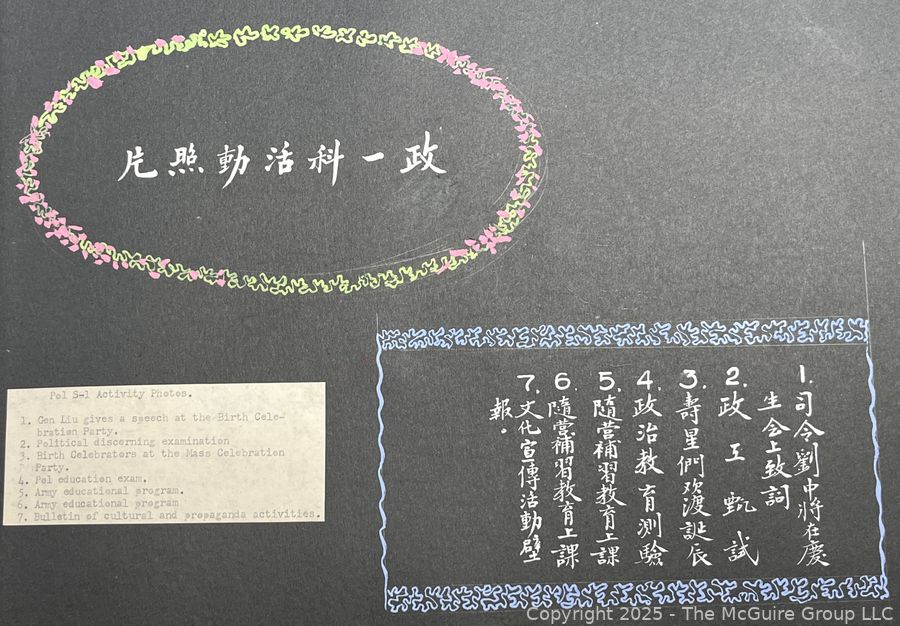 政一科活動照片
1. 司令劉中將在慶
生会上致詞
2. 政工甄試
3. 壽星們欢渡誕辰
4. 政治教育測驗
5. 隨營補習教育上課
6. 隨營補習教育上課
7. 文化宣傳活動壁
報。
Pol S-1 Activity Photos.
1. Gen Liu gives a speech at the Birth Cele-
bration Party.
2. Political discerning examination
3. Birth Celebrators at the Mass Celebration
Party.
4. Pol education exam.
5. Army educational program.
6. Army educational program
7. Bulletin of cultural and propaganda activities.
Copyright 2025 - The McGuire Group LLC